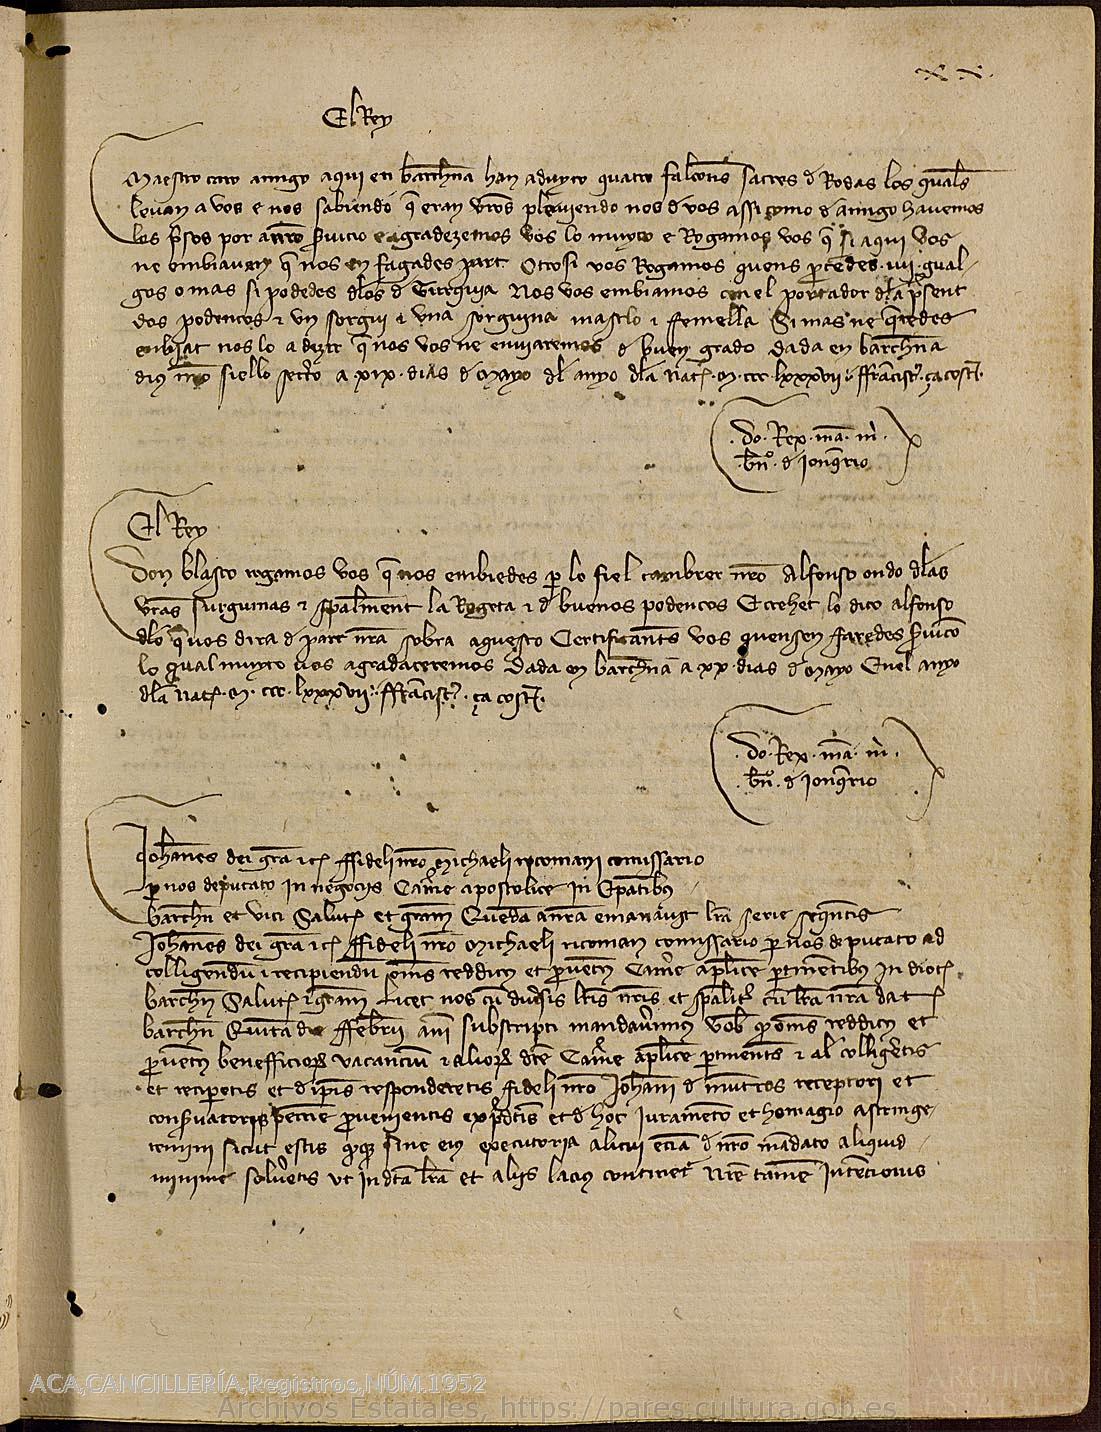 xx.
El Rey
Maestro caro amigo aqui en barchna han aduyto quatro falcons sacres d Rodas los quals
levan a vos e nos sabiendo q eran vros pleviendo nos d vos assi como d amigo havemos
los psos por a nro servicio e agradezemos vos lo muyto e Rogamos vos q si aqui vos
ne embiavan q nos en fagades part Otrosi vos Rogamos quens percedes .iiii. gual-
gos o mas si podedes dlos d Turquia Nos vos embiamos con el portador dla present
dos podencos & un sorgui & una sorguina masclo & femella Si mas ne qredes
embiat nos lo a dezir q nos vos ne enviaremos d buen grado dada en barchna
dius nro siello secreto a xix. dias d mayo dl anyo dla Nat. M. ccc. lxxxvii. ffrancisc. ça cost.
.Do. Rex. ma. m.
.bn. d Jonqerio
El Rey
Don blasco rogamos vos q nos embiedes p lo fiel cambrer nro Alfonso ondo dlas
vras surguinas & spalment la Rogeta & d buenos podencos E crehet lo dito alfonso
dlo q vos dira d part nra sobra aquesto Certificants vos quensen faredes servicio
lo qual muyto vos agradaceremos Dada en barchna a xx. dias d mayo Enel anyo
dla Nat. M. ccc. lxxxvii. ffrancisc. ça cost.
.Do. Rex. ma. m.
.bn. d Jonqerio
Johannes dei gra &c ffideli nro Michaeli rocomani comissario
p nos deputato in negociis Camere apostolice in Epatibus
barchn et vici Salut et gram Quedam a nra emanavit lra serie sequentis
Johannes dei gra &c ffideli nro Michaeli ricoman comissario p nos deputato ad
colligendu & recipiendu oms redditus et pventus Camere aplice ptinentibus in dioc.
barchn Salut & gram Licet nos cu diversis lris nris et spalit cu lra nra dat
barchn Quinta die ffebrii ani subscripti mandaverimus vob q oms redditus et
pventus benefficior vacanciu & alior dce Camere aplice ptinents & al colligeretis
et reciperetis et d ipis responderetis fideli nro Johani d muntros receptori et
conservatori peccie pvenientis ex pdictis et d hoc Juramento et homagio astringe-
remini sicut estis q sine eius executoria alicui ecia d nro mandato aliquid
minime solveretis ut in dta lra et aliis lacius continet Nre tamen intencionis
ACA,CANCILLERÍA,Registros,NÚM.1952
Archivos Estatales, https://pares.cultura.gob.es